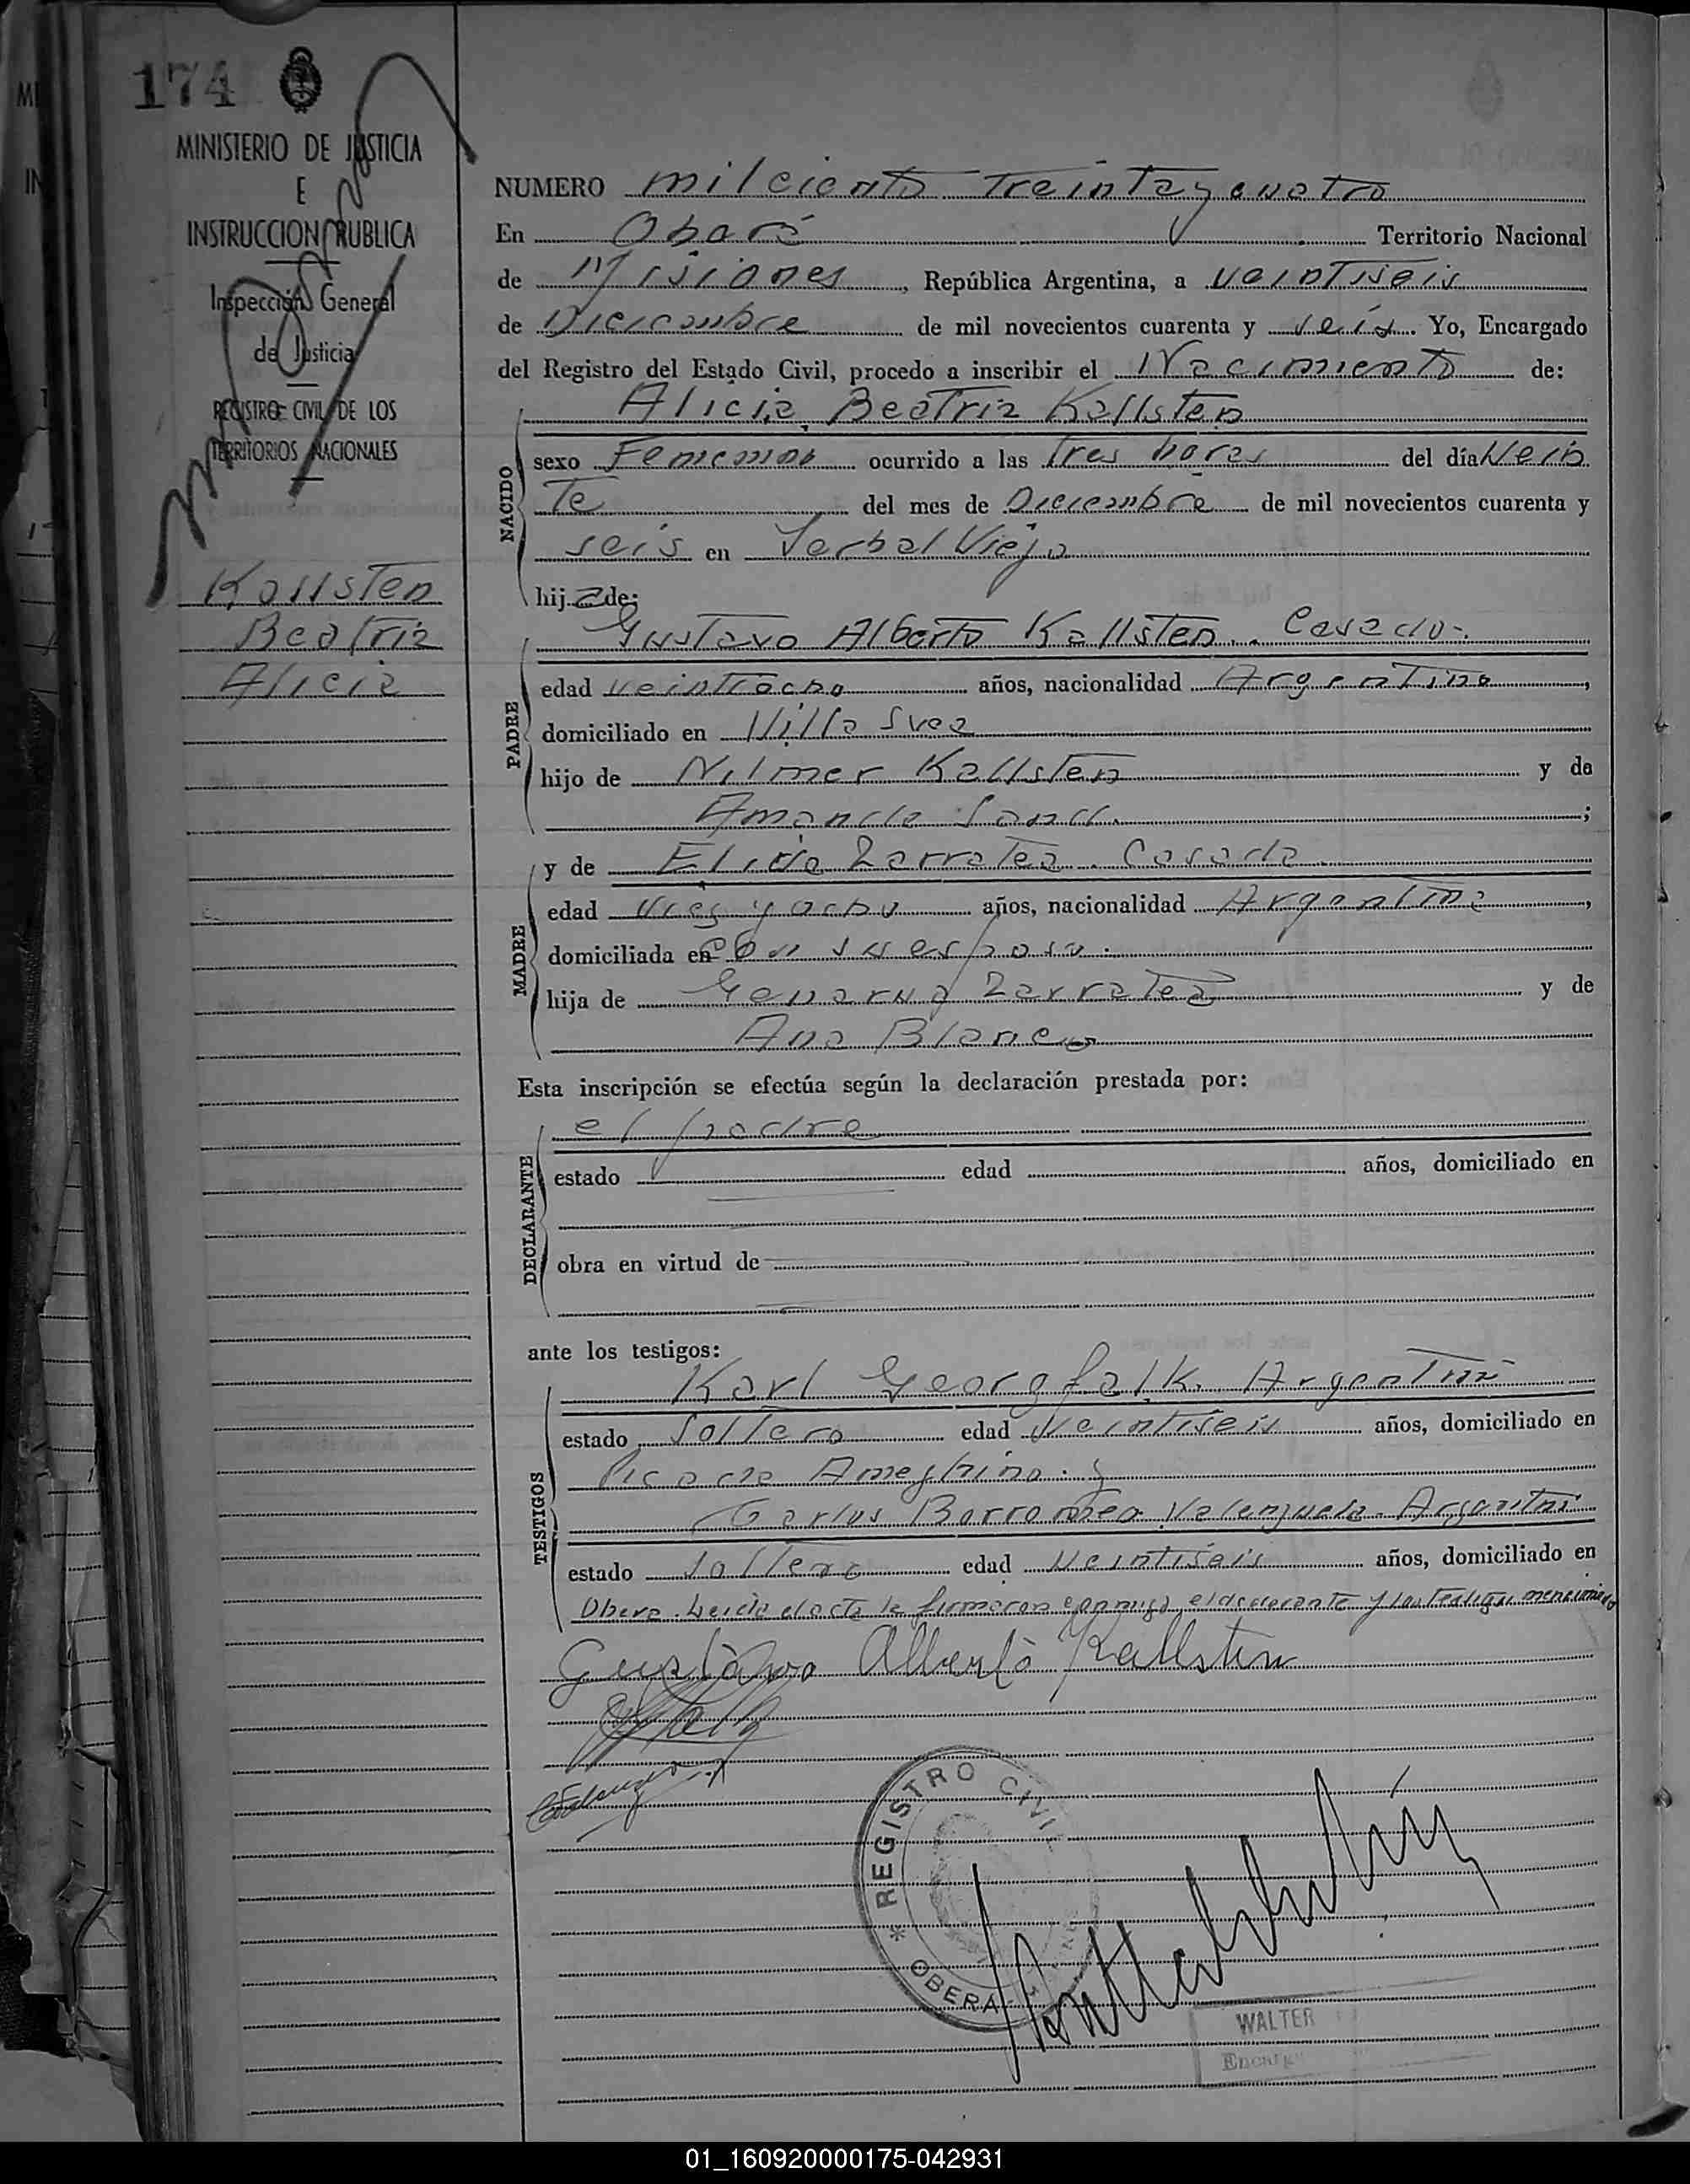 174
MINISTERIO DE JUSTICIA
E
INSTRUCCION PUBLICA
Inspección General
de Justicia
REGISTRO CIVIL DE LOS
TERRITORIOS NACIONALES
Kallsten
Beatriz
Alicia
NUMERO mil ciento treinta y cuatro
En Oberá Territorio Nacional
de Misiones, República Argentina, a veintiseis
de Diciembre de mil novecientos cuarenta y seis. Yo, Encargado
del Registro del Estado Civil, procedo a inscribir el Nacimiento de:
Alicia Beatriz Kallsten
NACIDO
sexo Femenino ocurrido a las tres horas del día Vein
te del mes de Diciembre de mil novecientos cuarenta y
seis en Yerbal Viejo
hija de:
PADRE
Gustavo Alberto Kallsten. Casado.
edad veintiocho años, nacionalidad Argentino,
domiciliado en Villa Svea
hijo de Nilmer Kallsten y de
Amanda Sand.;
MADRE
y de Elida Zarratea. Casada.
edad diez y ocho años, nacionalidad Argentina,
domiciliada en con su esposo.
hija de Genaro Zarratea y de
Ana Blanco
Esta inscripción se efectúa según la declaración prestada por:
DECLARANTE
el padre
estado edad años, domiciliado en
obra en virtud de
ante los testigos:
TESTIGOS
Karl Georg Falk. Argentino
estado Soltero edad Veintiseis años, domiciliado en
Picada Ameghino. y
Carlos Borromeo Valenzuela. Argentino
estado Soltero edad Veintiseis años, domiciliado en
Obera. Leida el acta la firmaron conmigo, el declarante y los testigos mencionados
Gustavo Alberto Kallsten
REGISTRO CIVIL
OBERA
WALTER
Encarg
01_160920000175-042931